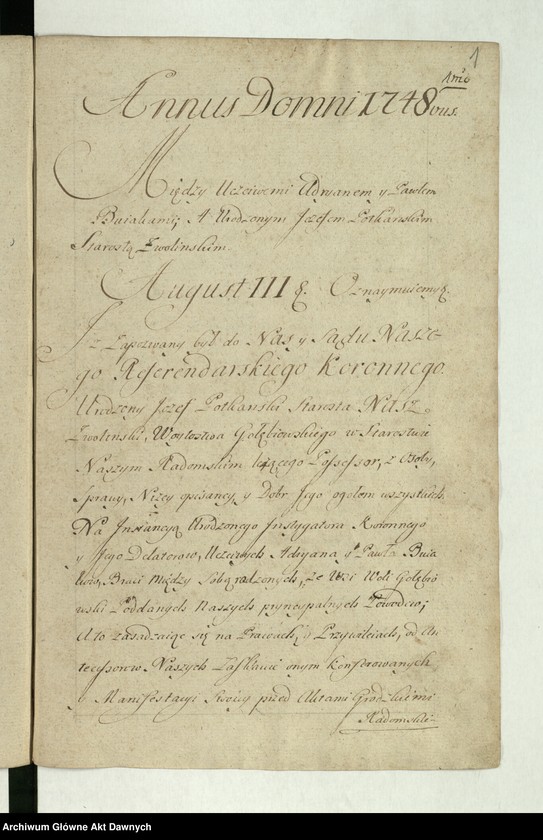 1
1mo
Annus Domni 1748vus.
Między Uczciwemi Adryanem y Pawłem
Buiakami; A Urodzonym Jozefem Potkanskim
Starostą Zwolinskim
August III &. Oznaymuiemy &.
Iz Zapozwany był do Nas y Sądu Nasze-
go Referendarskiego Koronnego
Urodzony Jozef Potkanski Starosta Nasz
Zwolinski, Woytostwa Gołębiowskiego w Starostwie
Naszym Radomskim leżącego Possessor, z Osoby,
Sprawy, Niżey opisaney y Dobr Jego ogołem wszystkich
Na Instancyą Urodzonego Instygatora Koronnego
y Jego Delatorow, Uczciwych Adryana y Pawła Buia
kow, Braci między Sobą rodzonych, ze Wsi Woli Gołębio
wski Poddanych Naszych pryncypalnych Powodow;
A to zasadzaiąc się na Prawach, y Przywileiach, od An
tecessorow Naszych Łaskawie onym konferowanych,
y Manifestacyi Swoiey przed Aktami Grodzkiemi
Radomski-
Archiwum Główne Akt Dawnych